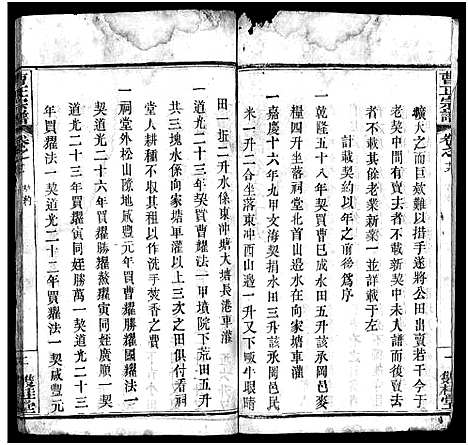 曹氏宗譜
卷之六
雙桂堂
曠大之而巨欵難以措手遂將公田出賣若干今于
老契中間有賣去者不載新契中未有欵項可抵者
不載將其餘老業新業一並計載于后
計載契約以年之前後爲序
一乾隆五十八年契買曹巳成水田五升該承岡邑
一嘉慶十六年九甲文海契買水田十一升該承岡邑民
糧四升坐落祠堂北首山邊水在向家塘車灌
一升二合坐落東冲西山邊一升又下畈牛眼時
田一坵二升水係東冲塘大塘長港車灌
一道光二十三年買曹耀法一甲墳院下荒田五升
共三塊水係向家塘車灌以上三次之田俱付看祠
堂人耕種不取租以作洗芽香之費
一祠堂外松山隙地咸豐元年買曹耀國耀法一契
道光二十六年買耀熬耀寅同姪廣順一契
契道光二十三年買耀寅同姪勝萬一契道光二十三
年買耀法一契道光二十二年買耀法一契咸豐元